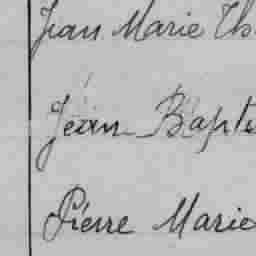 Jean Marie Th
Jean Bapte
Pierre Marie